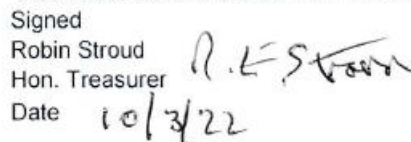 Signed
Robin Stroud
Hon. Treasurer R. E. Stroud
Date 10/3/22